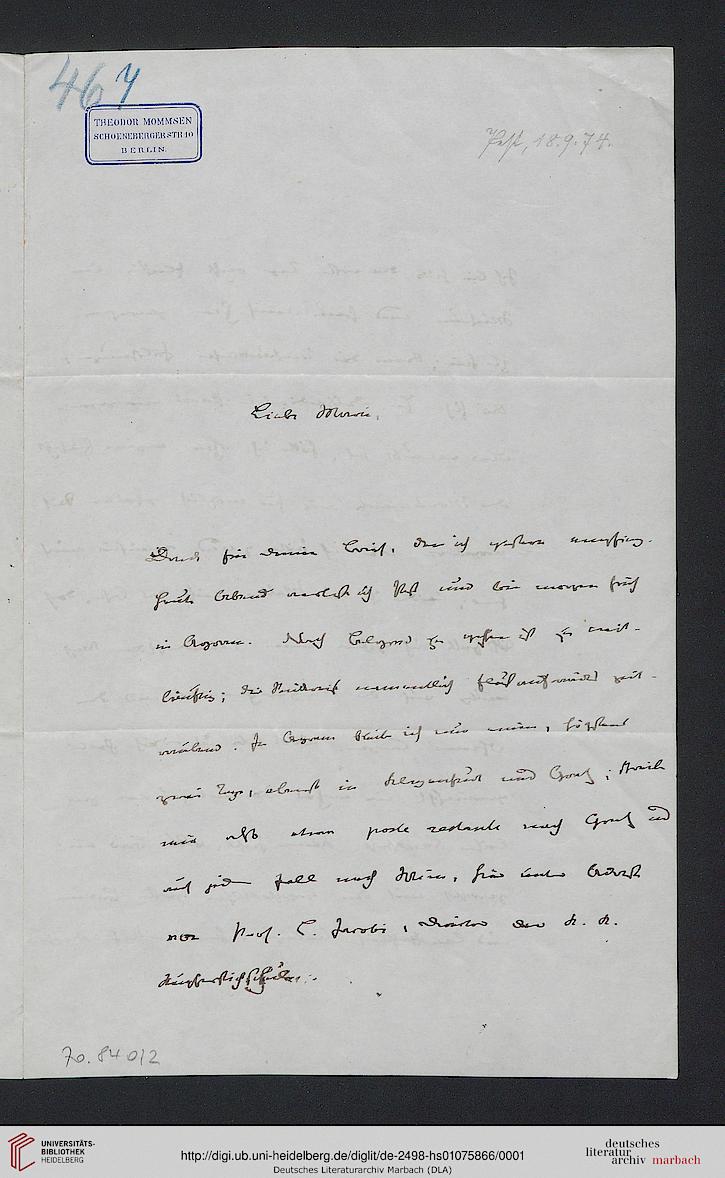 467
THEODOR MOMMSEN
SCHOENEBERGER STR 10
BERLIN.
Pest, 18.9.74.
Liebe Marie,
Dank für deinen Brief, den ich gestern empfing.
Heute Abend verlasse ich Pest und bin morgen früh
in Agram. Nach Belgrad zu gehen ist zu weit-
läuftig; die Rückreise namentlich flußaufwärts zeit-
raubend. In Agram bleibe ich nur einen, höchstens
zwei Tage, alsdann in Klagenfurt und Graz; schreibe
mir also etwa poste restante nach Graz und
auf jeden Fall nach Wien, hier unter Adresse
von Prof. L. Jacobi, Director der K. K.
Kupferstichschule.
70.84 012
UNIVERSITÄTS-
BIBLIOTHEK
HEIDELBERG
http://digi.ub.uni-heidelberg.de/diglit/de-2498-hs01075866/0001
Deutsches Literaturarchiv Marbach (DLA)
deutsches
literatur
archiv marbach